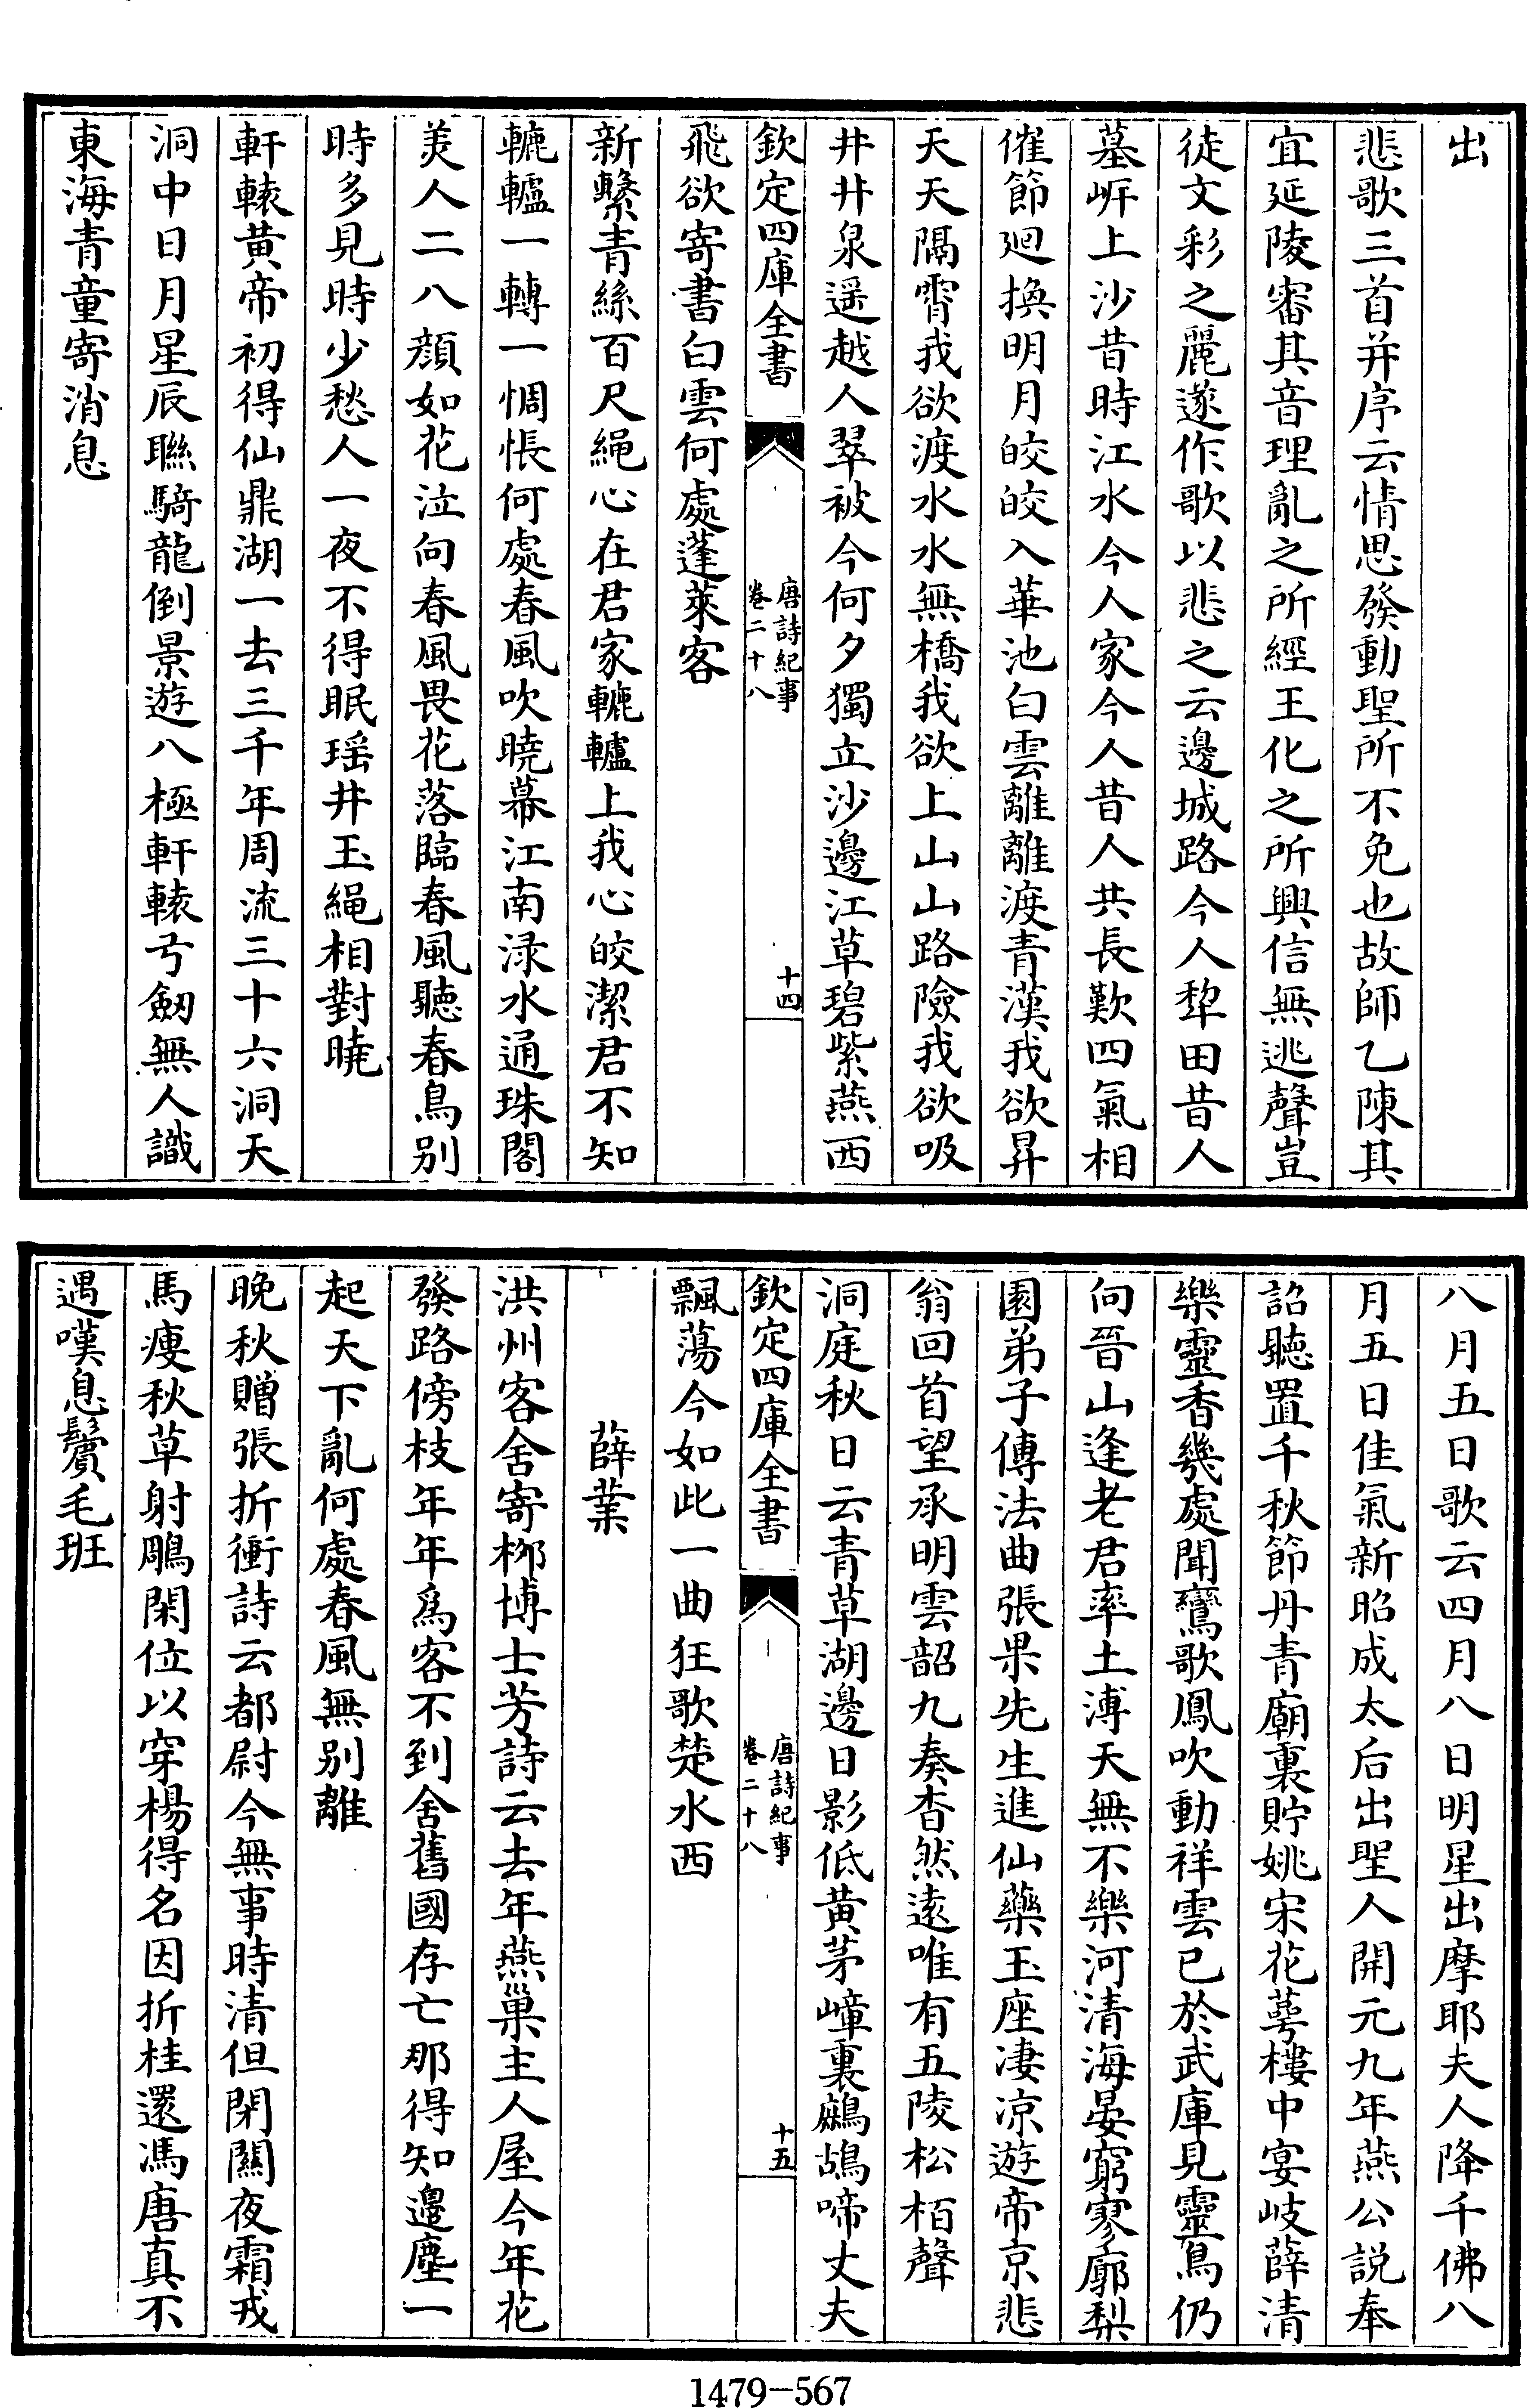 出
悲歌三首并序云情思發動聖所不免也故師乙陳其
宜延陵審其音理亂之所經王化之所興信無逃聲豈
徒文彩之麗遂作歌以悲之云邊城路今人犂田昔人
墓岍上沙昔時江水今人家今人昔人共長歎四氣相
催節廻換明月皎皎入華池白雲離離渡青漢我欲昇
天天隔霄我欲渡水水無橋我欲上山山路險我欲汲
井井泉遥越人翠被今何夕獨立沙邊江草碧紫燕西
欽定四庫全書
唐詩紀事
卷二十八
十四
飛欲寄書白雲何處蓬萊客
新繫青絲百尺繩心在君家轆轤上我心皎潔君不知
轆轤一轉一惆悵何處春風吹曉幕江南渌水通珠閣
美人二八顔如花泣向春風畏花落臨春風聽春鳥别
時多見時少愁人一夜不得眠瑶井玉繩相對曉
軒轅黄帝初得仙鼎湖一去三千年周流三十六洞天
洞中日月星辰聯騎龍倒景遊八極軒轅弓劒無人識
東海青童寄消息
八月五日歌云四月八日明星出摩耶夫人降千佛八
月五日佳氣新昭成太后出聖人開元九年燕公説奉
詔聽置千秋節丹青廟裏貯姚宋花萼樓中宴岐薛清
樂靈香幾處聞鸞歌鳳吹動祥雲已於武庫見靈鳥仍
向晉山逢老君率土溥天無不樂河清海晏窮寥廓梨
園弟子傳法曲張果先生進仙藥玉座凄凉遊帝京悲
翁回首望承明雲韶九奏杳然遠唯有五陵松栢聲
洞庭秋日云青草湖邊日影低黄茅嶂裏鷓鴣啼丈夫
欽定四庫全書
唐詩紀事
卷二十八
十五
飄蕩今如此一曲狂歌楚水西
薛業
洪州客舍寄桞博士芳詩云去年燕巢主人屋今年花
發路傍枝年年爲客不到舍舊國存亡那得知邉塵一
起天下亂何處春風無别離
晚秋贈張折衝詩云都尉今無事時清但閉關夜霜戎
馬瘦秋草射鵰閑位以穿楊得名因折桂還馮唐真不
遇嘆息鬢毛班
1479-567